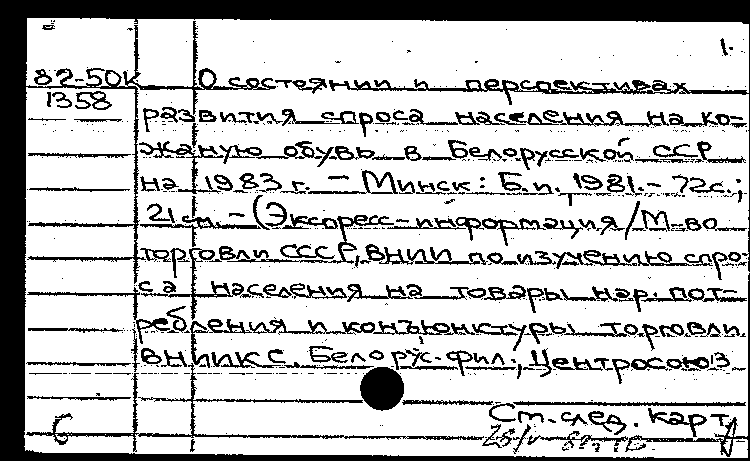 1.
82-50К О состоянии и перспективах
1358 развития спроса населения на ко-
жаную обувь в Белорусской ССР
на 1983 г. - Минск: Б.и., 1981.- 72с.;
21 см. - (Экспресс-информация/М-во
торговли СССР, ВНИИ по изучению спро-
са населения на товары нар. пот-
ребления и конъюнктуры торговли
ВНИИКС. Белорус. фил.; Центросоюз
Ст. след. карт.
Б